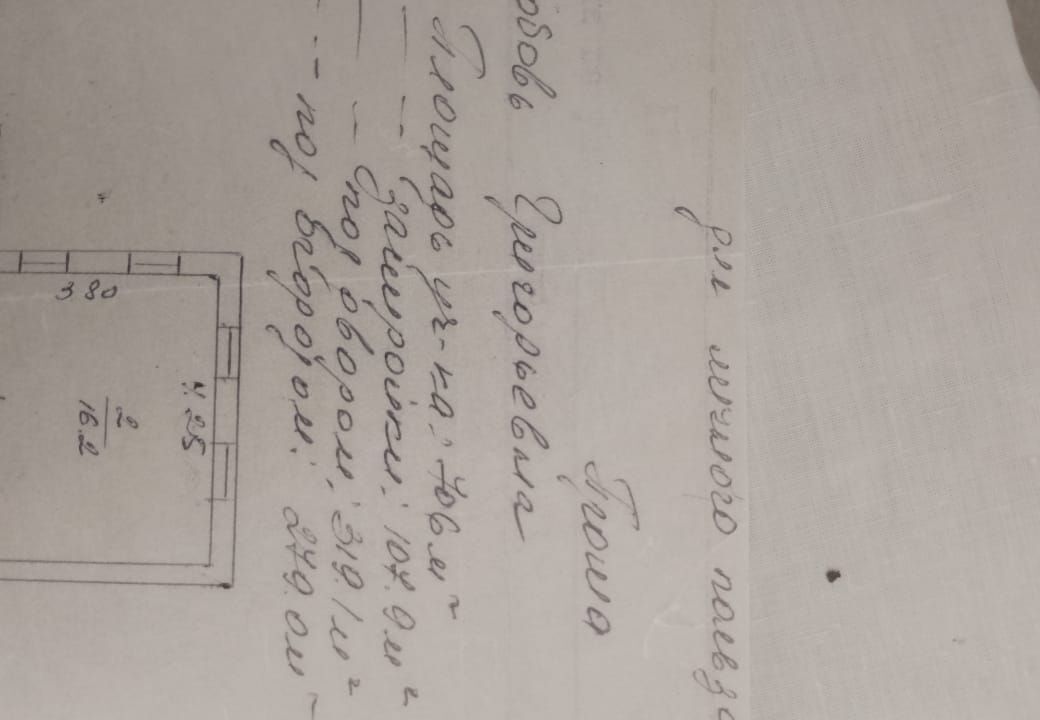 для личного польз
Гроша
бовь Григорьевна
Площадь уч-ка: 706 м²
— -- застройки: 107.9 м²
— — под двором: 319.1 м²
-- под огородом: 279.0 м
4.25
2
16.2
3 80